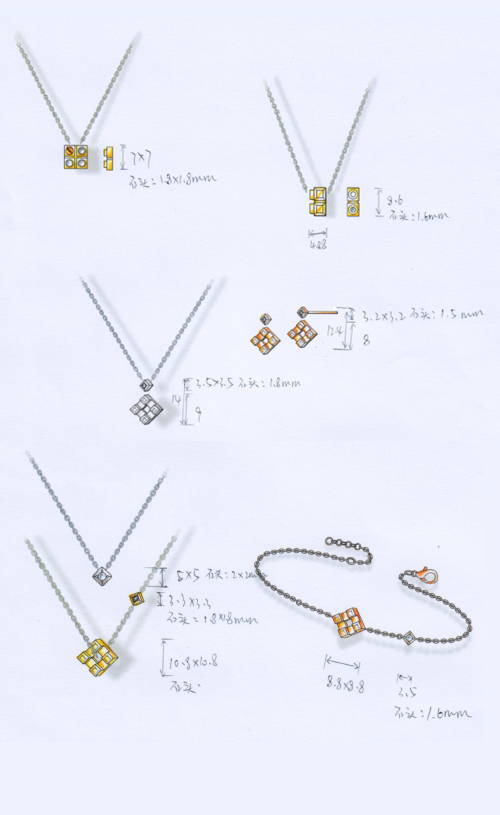 7×7
石头:1.8×1.8mm
8.6
石头:1.6mm
4.88
3.2×3.2 石头:1.5mm
12.4
8
3.5×3.5 石头:1.8mm
14
9
5×5 石头:2×2mm
3.3×3.3
石头:1.8×1.8mm
10.8×10.8
石头:
8.8×8.8
3.5
石头:1.6mm